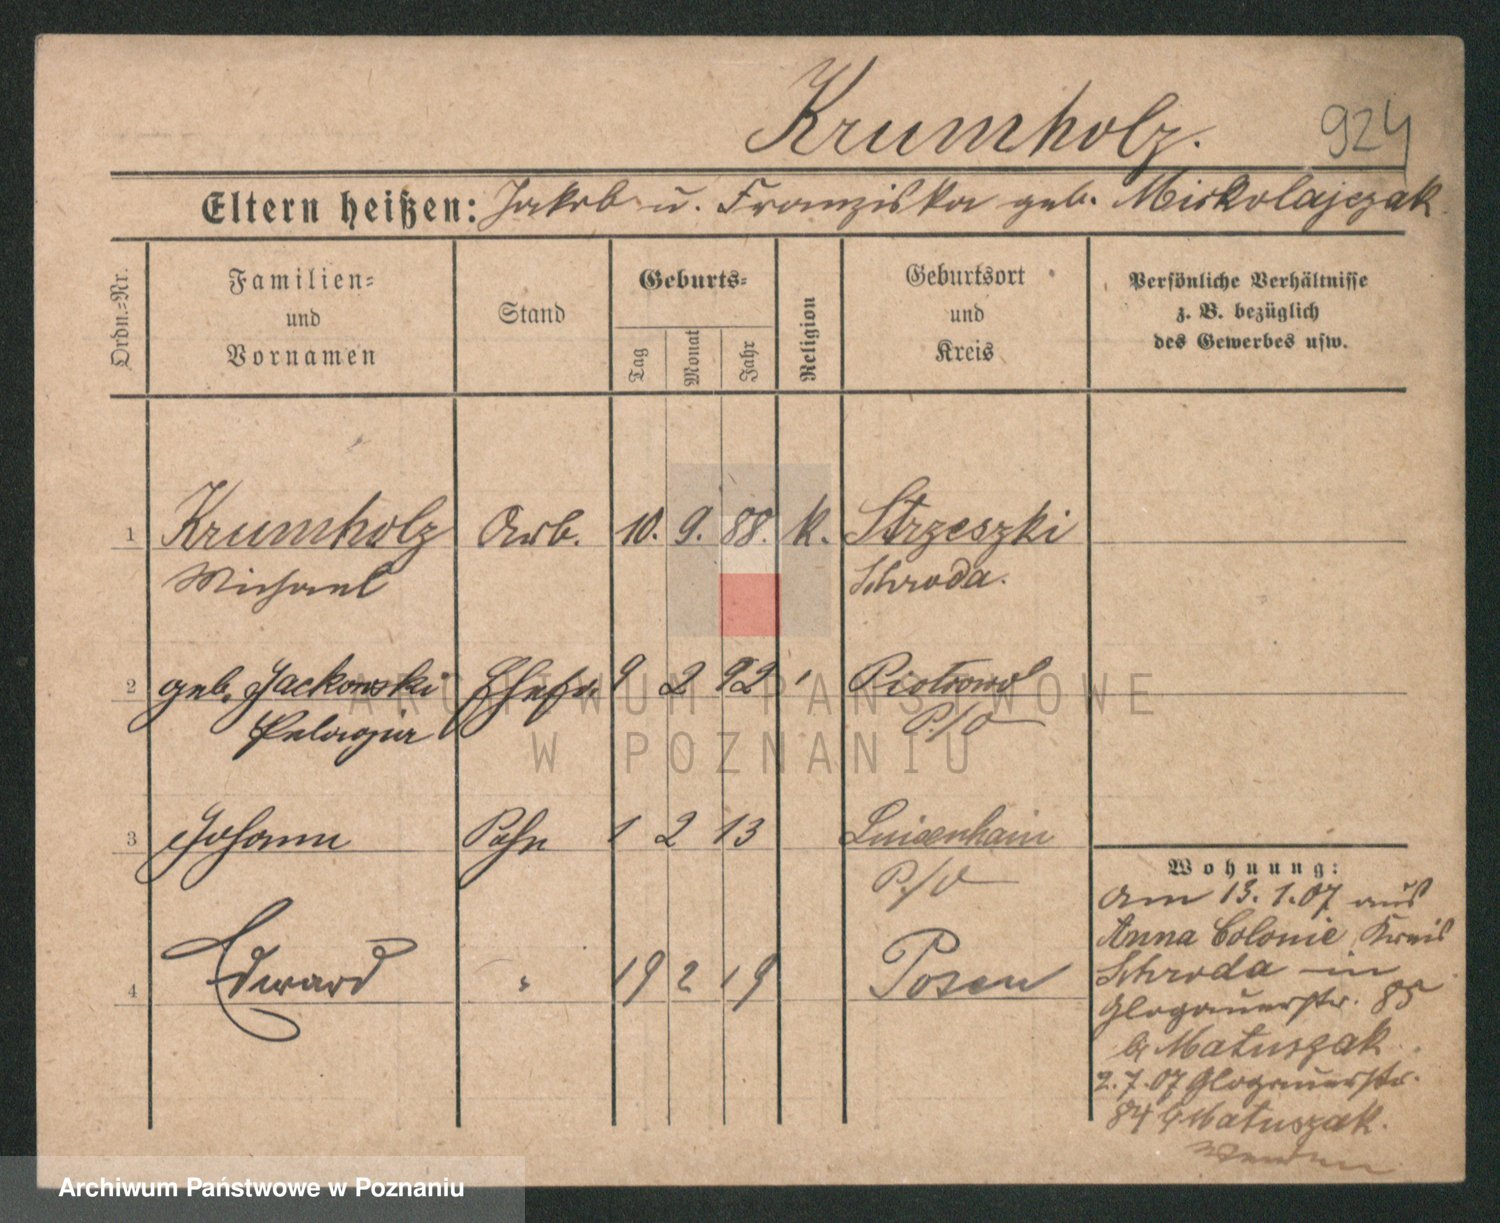 Krumholz.
924
Eltern heißen: Jakob u. Franziska geb. Mikolajczak.
Ordn.-Nr.
Familien-
und
Vornamen
Stand
Geburts-
Tag
Monat
Jahr
Religion
Geburtsort
und
Kreis
Persönliche Verhältnisse
z. B. bezüglich
des Gewerbes usw.
1 Krumholz Arb. 10. 9. 88. k. Strzeszki
Michael Schroda.
2 geb. Jackowski Ehefr. 9 2 92 " Piotrowo
Pelagia P./O
3 Johann Sohn 1 2 13 Luisenhain
P./O
4 Edward " 19 2 19 Posen
Wohnung:
Am 13. 1. 07 aus
Anna Colonie Kreis
Schroda in
Glogauerstr. 85
b/ Matuszak.
2. 7. 07 Glogauerstr.
84 b/ Matuszak.
wenden
ARCHIWUM PAŃSTWOWE
W POZNANIU
Archiwum Państwowe w Poznaniu